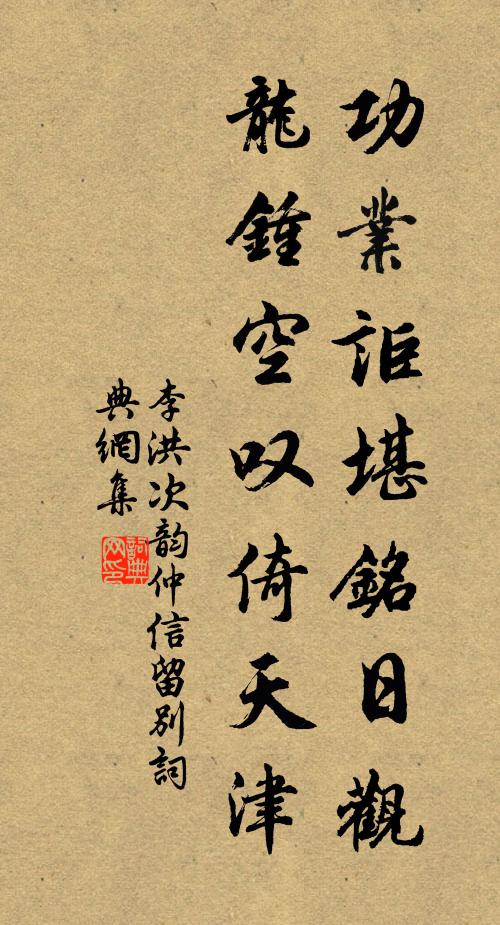 功業詎堪銘日觀
龍鍾空叹倚天津
李洪次韵仲信留別詞
典網集
詞典
网印